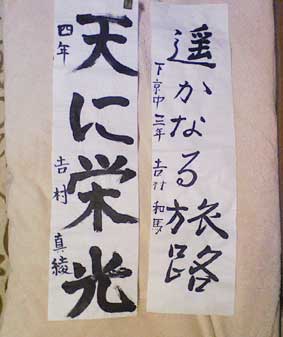 遥かなる旅路
下京中三年 吉村 和馬
天に栄光
四年 吉村 真綾